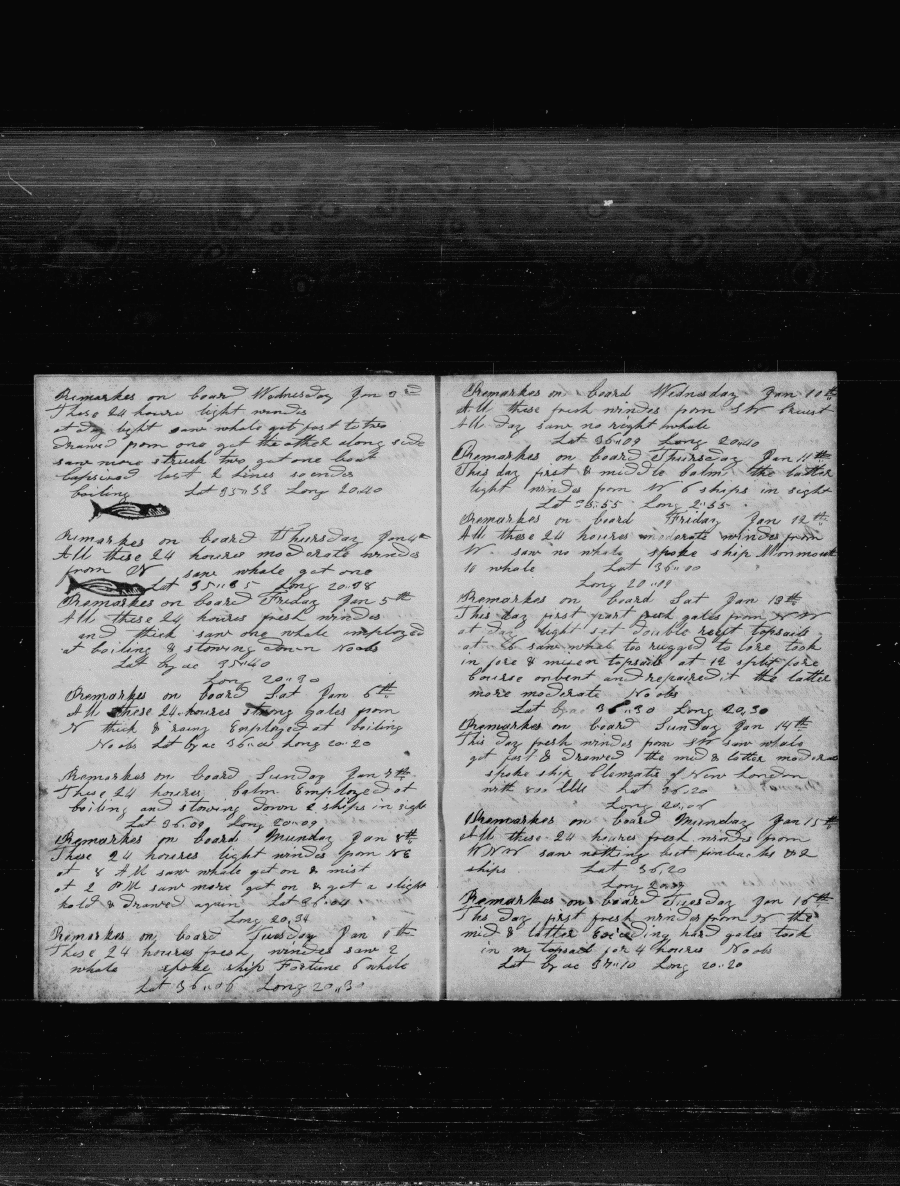 Remarkes on board Wednesday Jan 3rd
These 24 houre light windes
at day light saw whale got fast to two
drawed from one got the other along side
saw more struck two got one boat
capsised lost 2 lines sounded
boiling Lat 35"33 Long 20"40
Remarkes on board Thursday Jan 4th
All these 24 houres moderate windes
from W saw whale got one
Lat 35"35 Long 20"38
Remarkes on board Friday Jan 5th
All these 24 houres fresh windes
and thick saw one whale employed
at boiling & stowing down No obs
Lat by ac 35"40
Long 20"30
Remarkes on board Sat Jan 6th
All these 24 houres strong gales from
N thick & rainy Employed at boiling
No obs Lat by ac 36"00 Long 20"20
Remarkes on board Sunday Jan 7th
These 24 houres calm Employed at
boiling and stowing down 2 ships in sight
Lat 36"09 Long 20"09
Remarkes on board Munday Jan 8th
These 24 houres light windes from NE
at 8 AM saw whale got on & mist
at 2 PM saw more got on & got a slight
hold & drawed again Lat 36"04
Long 20,34
Remarkes on board Tuesday Jan th
These 24 houres fresh windes saw 2
whale spoke ship Fortune 6 whale
Lat 36"06 Long 20"30
Remarkes on board Wednesday Jan 10th
All these fresh windes from SW
All day saw no right whale
Lat 36"09 Long 20"40
Remarkes on board Thursday Jan 11th
This day first & middle calm the latter
light windes from W 6 ships in sight
Lat 36"55 Long 55
Remarkes on board Friday Jan 12th
All these 24 houres moderate windes from
W saw no whale spoke ship Monmouth
10 whale Lat 36"00
Long 20"09
Remarkes on board Sat Jan 13th
This day first part fresh gales from NW
at day light set double reeft topsails
at saw whale too rugged to lore took
in fore & misen topsails at 12 split fore
course onbent and repaired it the latter
more moderate No obs
Lat by ac 36"30 Long 20,30
Remarkes on board Sunday Jan 14th
This day fresh windes from SW saw whale
got fast & drawed the mid & latter moderate
spoke ship Clematis of New London
with 800 bbls Lat 36"20
Long 20"06
Remarkes on board Munday Jan 15th
All these 24 houres fresh windes from
WNW saw nothing but finbacks & 2
ships Lat 36,20
Long
Remarkes on board Tuesday Jan 16th
This day first fresh windes from N the
mid & latter hard gales took
in m topsail for 4 houres No obs
Lat by ac 37"10 Long 20"20